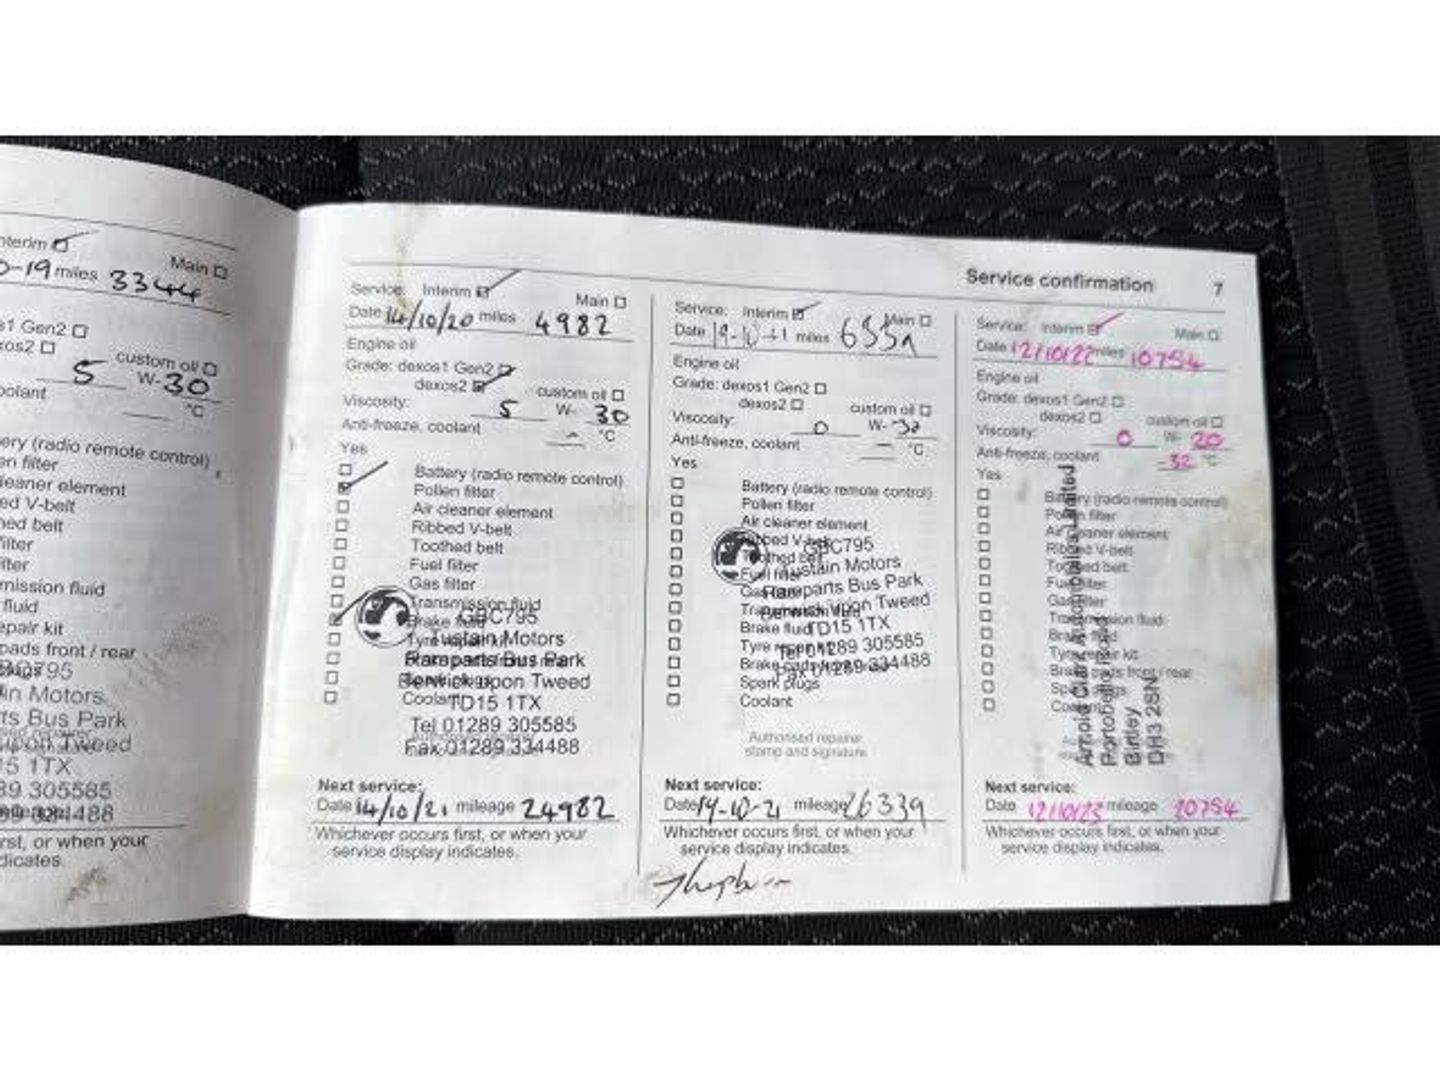 Interim
Main
-19 miles 3344
Gen2
custom oil
5 W-30
°C
(radio remote control)
filter
element
V-belt
belt
filter
filter
fluid
fluid
kit
pads front / rear
Motors
Bus Park
upon Tweed
1TX
305585
334488
first, or when your
Service confirmation 7
Service: Interim Main
Date 14/10/20 miles 4982
Engine oil
Grade: dexos1 Gen2
dexos2 custom oil
Viscosity: 5 W- 30
Anti-freeze, coolant - °C
Yes
Battery (radio remote control)
Pollen filter
Air cleaner element
Ribbed V-belt
Toothed belt
Fuel filter
Gas filter
Transmission fluid
Brake fluid
GBC795
Tyre repair kit
Tustain Motors
Ramparts Bus Park
Berwick upon Tweed
Coolant
TD15 1TX
Tel 01289 305585
Fax 01289 334488
Next service:
Date 14/10/21 mileage 24982
Whichever occurs first, or when your
service display indicates.
Service: Interim Main
Date miles
Engine oil
Grade: dexos1 Gen2
dexos2 custom oil
Viscosity: 0 W-
Anti-freeze, coolant °C
Yes
Battery (radio remote control)
Pollen filter
Air cleaner element
Ribbed V-belt
GBC795
Toothed belt
Tustain Motors
Fuel filter
Ramparts Bus Park
Gas filter
Berwick upon Tweed
Transmission fluid
Brake fluid
TD15 1TX
Tyre repair kit
Tel 01289 305585
Brake pads front / rear
Fax 01289 334488
Spark plugs
Coolant
Authorised repairer
stamp and signature
Next service:
Date 19-10-21 mileage 26339
Whichever occurs first, or when your
service display indicates.
Service: Interim Main
Date 12/10/22 miles 10754
Engine oil
Grade: dexos1 Gen2
dexos2 custom oil
Viscosity: 0 W- 20
Anti-freeze, coolant -32 °C
Yes
Battery (radio remote control)
Pollen filter
Air cleaner element
Ribbed V-belt
Toothed belt
Fuel filter
Gas filter
Transmission fluid
Brake fluid
Tyre repair kit
Brake pads front / rear
Spark plugs
Coolant
Arnold Clark Automobiles Limited
Portobello
Birtley
DH3 2SN
Next service:
Date 12/10/23 mileage 20754
Whichever occurs first, or when your
service display indicates.